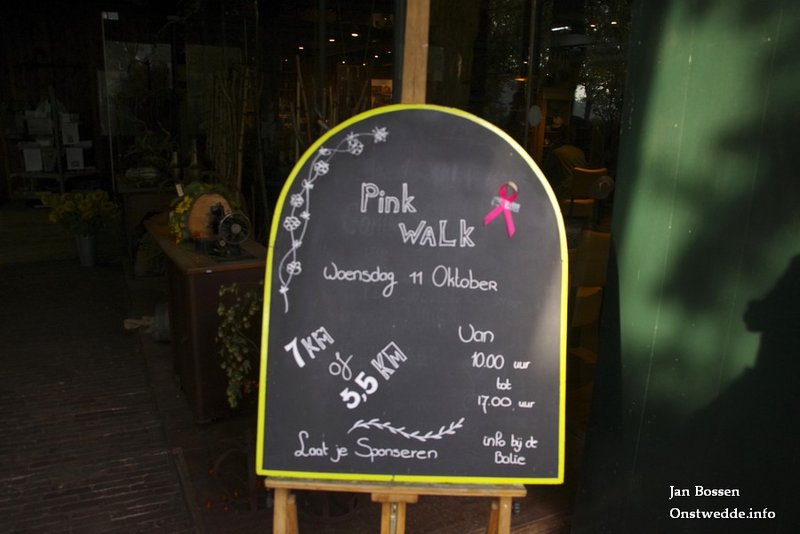 Pink
WALK
Woensdag 11 Oktober
7 KM
of
5,5 KM
Van
10.00 uur
tot
17.00 uur
Laat je Sponseren
info bij de
Balie
Jan Bossen
Onstwedde.info